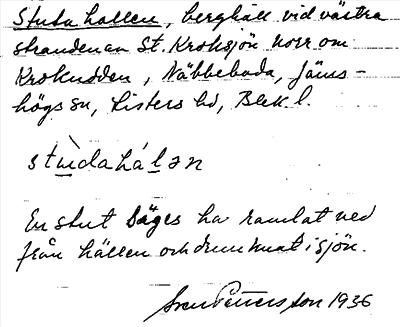 Stuta hallen, berghäll vid västra
stranden av St. Kroksjön norr om
Krokudden, Näbbeboda, Jäms-
högs sn, Listers hd, Blek l.
stùdahálən
En stut säges ha ramlat ned
från hällen och drunknat i sjön.
Sven Pettersson 1936